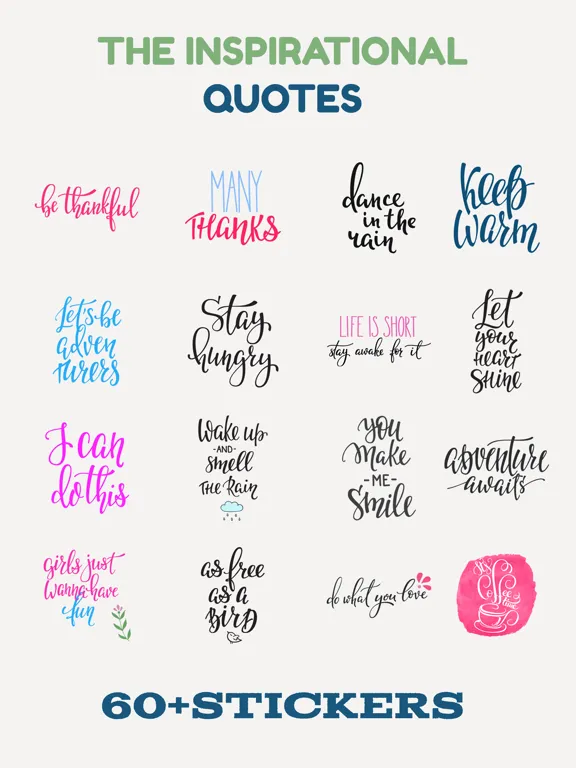 THE INSPIRATIONAL
QUOTES
be thankful
MANY
THANKS
dance
in the
rain
keep
warm
Let's be
adven
turers
Stay
hungry
LIFE IS SHORT
stay awake for it
Let
your
heart
Shine
I can
do this
Wake up
-AND-
smell
THE Rain
you
make
-ME-
Smile
adventure
awaits
girls just
wanna have
fun
as free
as a
BIRD
do what you love
Coffee
60+STICKERS